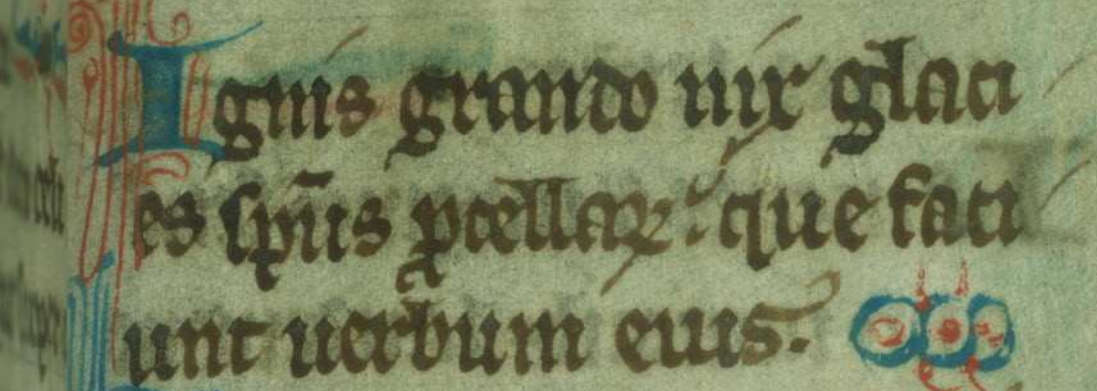 Ignis grando nix glaci
es sp̄us ꝓcellaꝝ: que faci
unt uerbum eius.